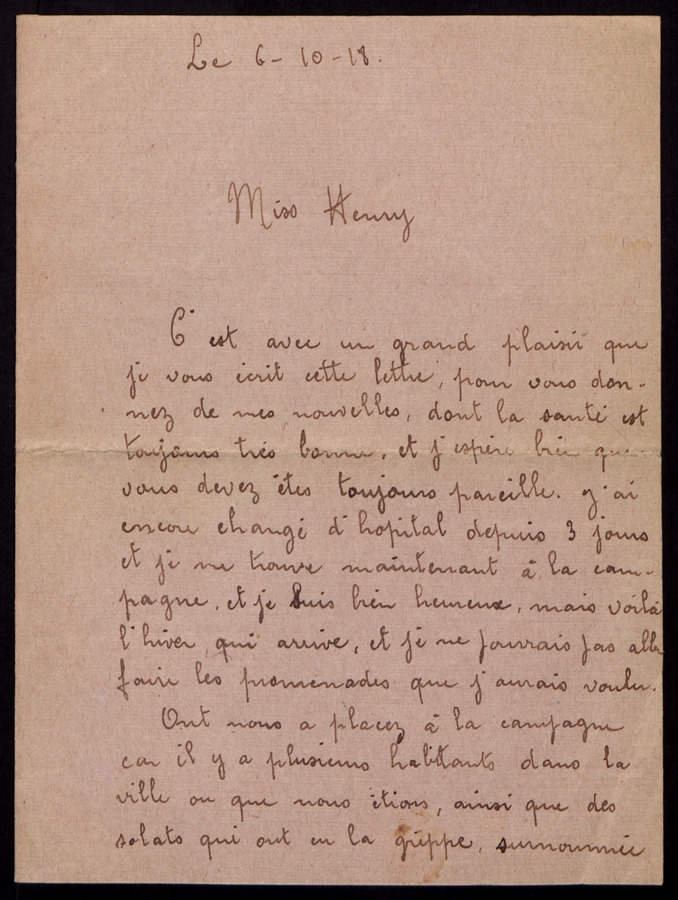 Le 6-10-18.
Miss Henry
C'est avec un grand plaisir que
je vous écrit cette lettre, pour vous don-
nez de mes nouvelles, dont la santé est
toujours très bonne, et j'espère bien que
vous devez êtes toujours pareille. J'ai
encore changé d'hopital depuis 3 jours
et je me trouve maintenant à la cam-
pagne, et je suis bien heureux, mais voilà
l'hiver qui arrive, et je ne pourrais pas aller
faire les promenades que j'aurais voulu.
Ont nous a placez à la campagne
car il y a plusieurs habittants dans la
ville ou que nous étions, ainsi que des
solats qui ont eu la grippe, surnommée